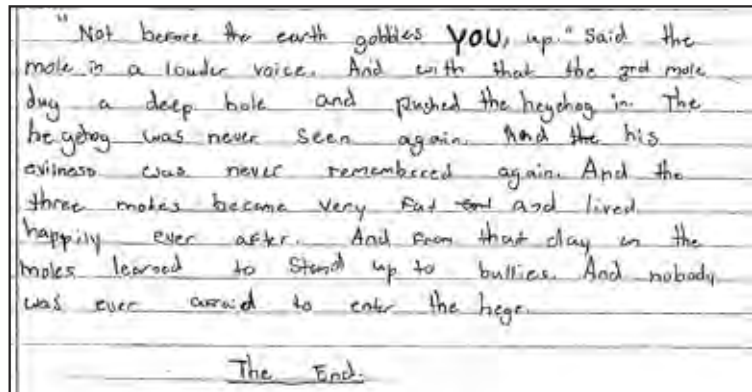 "Not before the earth gobbles YOU, up." Said the
mole in a louder voice. And with that the 3rd mole
dug a deep hole and pushed the heychog in. The
hegehog was never seen again. And the his
evilness was never remembered again. And the
three moles became very fat and and lived
happily ever after. And from that day on the
moles learned to stand up to bullies. And nobody
was ever afraid to enter the hege.
The End.